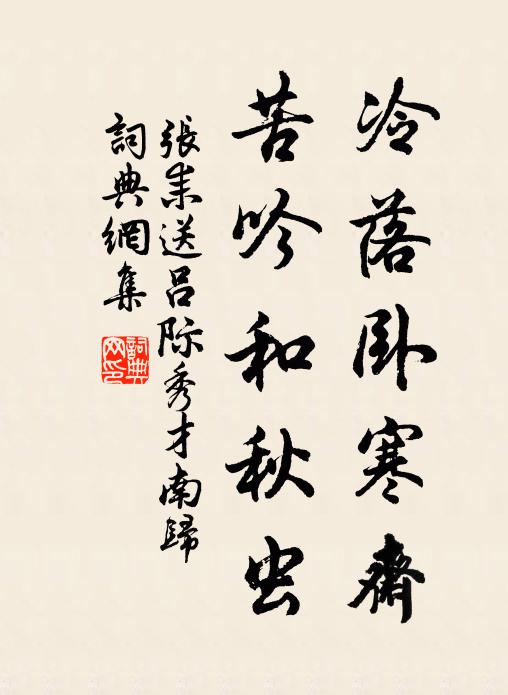 冷落卧寒齋
苦吟和秋虫
張耒送吕際秀才南歸
詞典網集
詞典網印